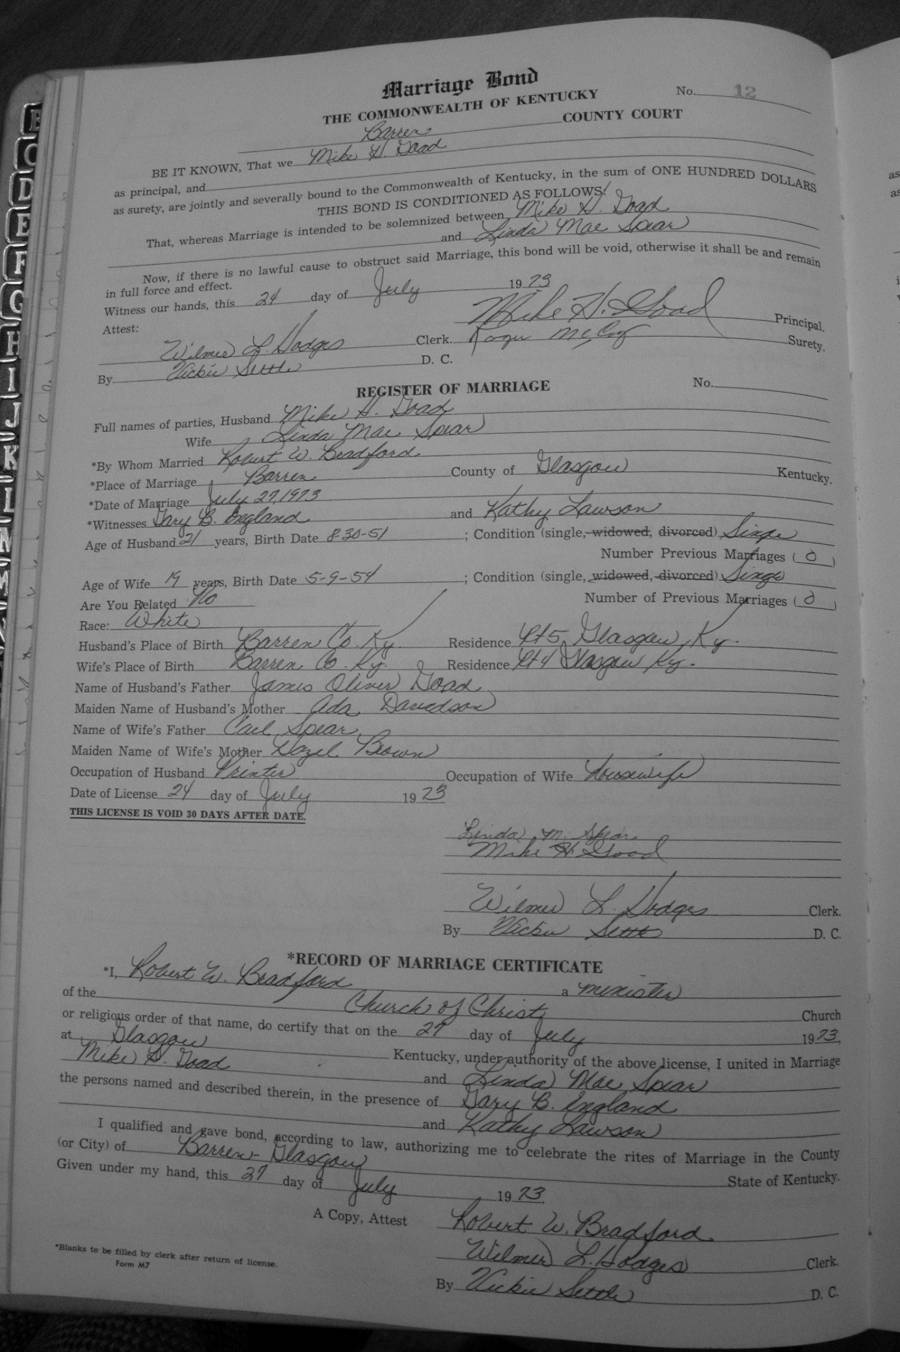 Marriage Bond
No. 12
THE COMMONWEALTH OF KENTUCKY
Barren COUNTY COURT
BE IT KNOWN, That we Mike H. Goad
as principal, and
as surety, are jointly and severally bound to the Commonwealth of Kentucky, in the sum of ONE HUNDRED DOLLARS
THIS BOND IS CONDITIONED AS FOLLOWS:
That, whereas Marriage is intended to be solemnized between Mike H. Goad
and Linda Mae Spear
Now, if there is no lawful cause to obstruct said Marriage, this bond will be void, otherwise it shall be and remain
in full force and effect.
Witness our hands, this 24 day of July 1973
Mike H. Goad Principal.
Attest:
Wilmer L. Hodges Clerk. Roger McCoy Surety.
By Vickie Settle D. C.
REGISTER OF MARRIAGE No.
Full names of parties, Husband Mike H. Goad
Wife Linda Mae Spear
*By Whom Married Robert W. Bradford
*Place of Marriage Barren County of Glasgow Kentucky.
*Date of Marriage July 27, 1973
*Witnesses Gary B. England and Kathy Lawson
Age of Husband 21 years, Birth Date 8-30-51 ; Condition (single, widowed, divorced) Singe
Number Previous Marriages ( 0 )
Age of Wife 19 years, Birth Date 5-9-54 ; Condition (single, widowed, divorced) Singe
Are You Related No Number of Previous Marriages ( 0 )
Race: White
Husband's Place of Birth Barren Co. Ky Residence Rt 5 Glasgow, Ky.
Wife's Place of Birth Barren Co. Ky. Residence Rt 4 Glasgow Ky.
Name of Husband's Father James Oliver Goad
Maiden Name of Husband's Mother Ada Davidson
Name of Wife's Father Carl Spear
Maiden Name of Wife's Mother Hazel Brown
Occupation of Husband Printer Occupation of Wife Housewife
Date of License 24 day of July 1973
THIS LICENSE IS VOID 30 DAYS AFTER DATE.
Linda M. Spear
Mike H Goad
Wilmer L. Hodges Clerk.
By Vickie Settle D. C.
*RECORD OF MARRIAGE CERTIFICATE
*I, Robert W. Bradford a minister
of the Church of Christ Church
or religious order of that name, do certify that on the 27 day of July 1973,
at Glasgow Kentucky, under authority of the above license, I united in Marriage
Mike H. Goad and Linda Mae Spear
the persons named and described therein, in the presence of Gary B. England
and Kathy Lawson
I qualified and gave bond, according to law, authorizing me to celebrate the rites of Marriage in the County
(or City) of Barren - Glasgow State of Kentucky.
Given under my hand, this 27 day of July 1973
A Copy, Attest Robert W. Bradford
Wilmer L. Hodges Clerk.
By Vickie Settle D. C.
*Blanks to be filled by clerk after return of license.
Form M7